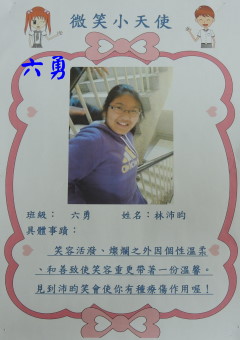 微笑小天使
六勇
班級： 六勇 姓名：林沛昀
具體事蹟：
笑容活潑、燦爛之外因個性溫柔
、和善致使笑容重更帶著一份溫馨。
見到沛昀的笑會使你有種療傷作用喔！